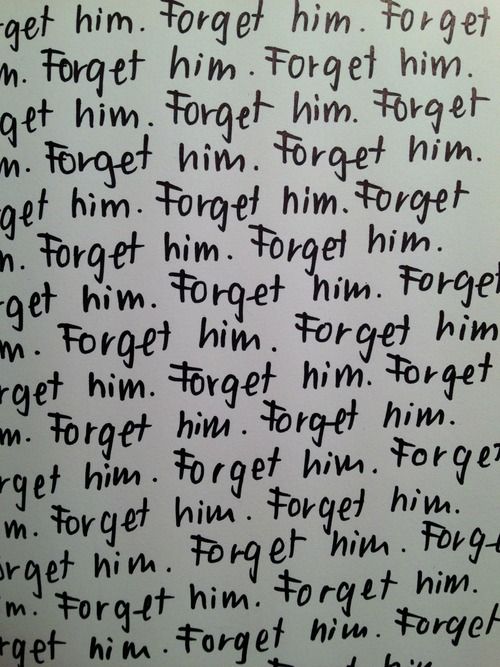 rget him. Forget him. Forget
m. Forget him. Forget him.
get him. Forget him. Forget
m. Forget him. Forget him.
get him. Forget him. Forget
m. Forget him. Forget him.
rget him. Forget him. Forget
m. Forget him. Forget him
rget him. Forget him. Forget
m. Forget him. Forget him.
rget him. Forget him. Forget
m. Forget him. Forget him.
orget him. Forget him. Forg
m. Forget him. Forget him.
rget him. Forget him. Forget